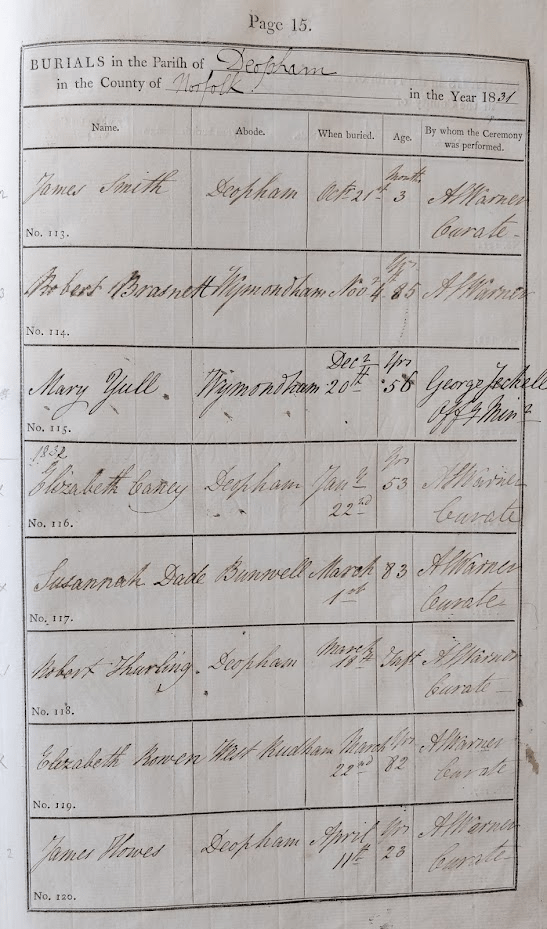 Page 15.
BURIALS in the Parish of Deopham
in the County of Norfolk in the Year 1831
Name. Abode. When buried. Age. By whom the Ceremony was performed.
Months
James Smith Deopham Octr 21st 3 A Warner
Curate
No. 113.
Yrs
Robert Brasnett Wymondham Novr 4 85 A Warner
No. 114.
Decr Yrs
Mary Yull Wymondham 20th 56 George Jeckell
Offg Minr
No. 115.
1832
Yrs
Elizabeth Caney Deopham Jany 53 A Warner
22nd Curate
No. 116.
Susannah Dade Bunwell March 83 A Warner
1st Curate
No. 117.
March
Robert Thurling Deopham 18th Inft A Warner
Curate
No. 118.
Elizabeth Bowen West Rudham March Yrs A Warner
22nd 82 Curate
No. 119.
James Howes Deopham April Yrs A Warner
11th 23 Curate
No. 120.